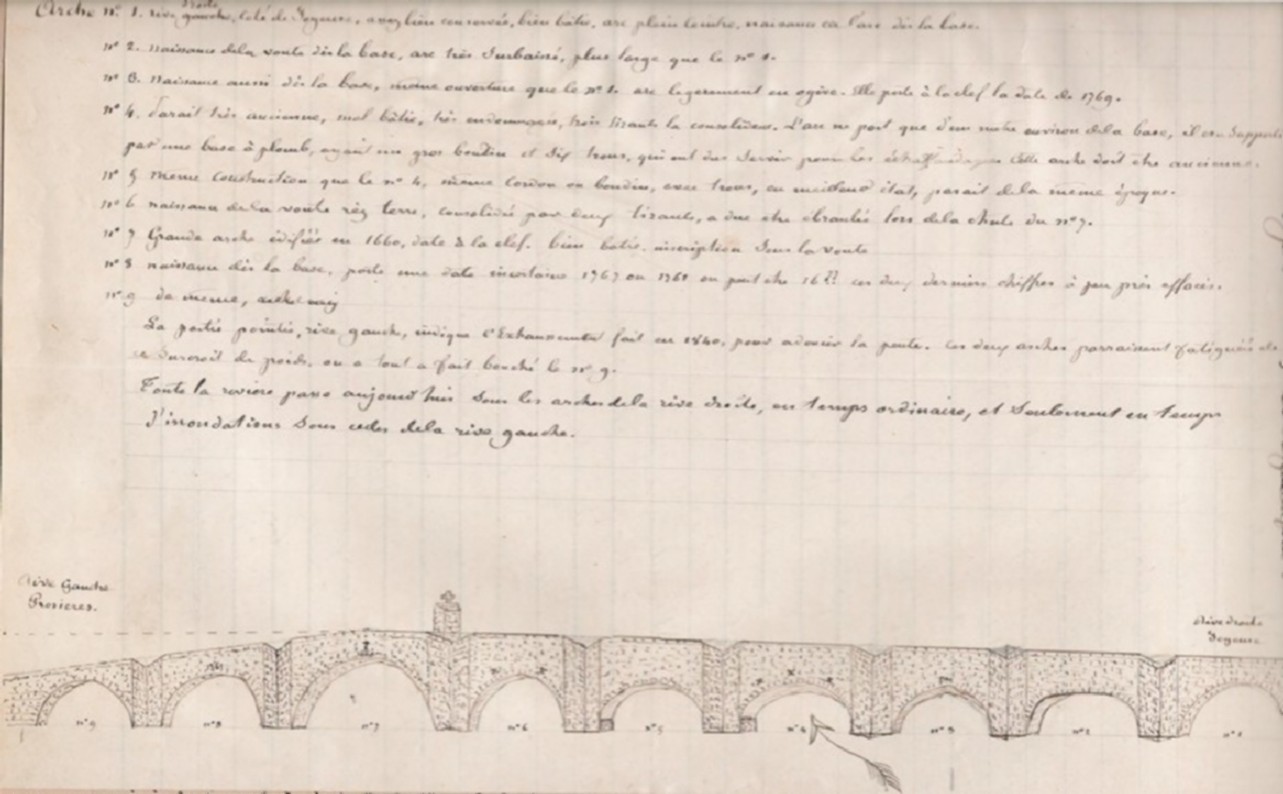 Arche n° 1. rive gauche, côté de Joyeuse, assez bien conservée, bien bâtie, arc plein cintre, naissance de l'arc dès la base.
droite
n° 2. Naissance de la voute dès la base, arc très surbaissé, plus large que le n° 1.
n° 3. Naissance aussi dès la base, même ouverture que le n° 1. arc legerement en ogive. Elle porte à la clef la date de 1769.
n° 4. Parait très ancienne, mal bâtie, très endommagée, trois tirants la consolident. L'arc ne part que d'un mètre environ de la base, il est
par une base à plomb, ayant un gros boudin et six trous, qui ont dus servir pour les Cette arche doit être ancienne.
n° 5 meme construction que le n° 4, même cordon ou boudin, avec trous, en meilleur état, parait de la même époque.
n° 6 naissance de la voute rez terre, consolidée par deux tirants, a due etre ébranlée lors de la chute du n° 7.
n° 7 Grande arche édifiée en 1660, date à la clef. bien batie. inscription sous la voute
n° 8 naissance dès la base, porte une date incertaine 1767 ou 1768 ou peut etre 16?? ces deux derniers chiffres à peu près effacés.
n° 9 de meme,
La partie pointée, rive gauche, indique l'Exhaussement fait en 1840, pour adoucir la pente. Ces deux arches parraissent fatiguées de
ce surcroit de poids, on a tout a fait bouché le n° 9.
Toute la riviere passe aujourd'hui sous les arches de la rive droite, en temps ordinaire, et seulement en temps
d'innondations sous celles de la rive gauche.
Rive Gauche
Rosieres.
Rive droite
Joyeuse
n° 9 n° 8 n° 7 n° 6 n° 5 n° 4 n° 3 n° 2 n° 1